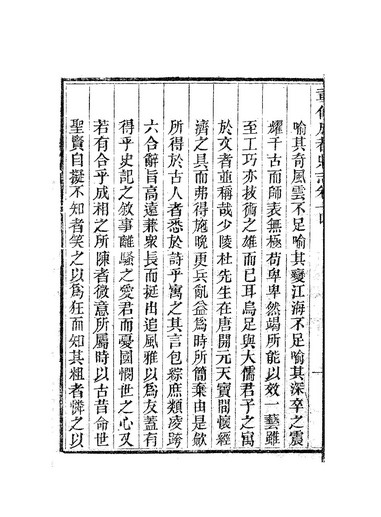 喻其奇風雲不足喻其變江海不足喻其深卒之震
耀千古而師表無極苟卑卑然竭所能以效一藝雖
至工巧亦技術之雄而已耳烏足與大儒君子之寓
於文者並稱哉少陵杜先生在唐開元天寶間懷經
濟之具而弗得施晚更兵飢益爲時所簡棄由是歛
所得於古人者悉於詩乎寓之其言包綜庶類凌跨
六合辭旨高遠兼衆長而挺出追風雅以爲友蓋有
得乎史記之敘事離騷之愛君而憂國憫世之心又
若有合乎成相之所陳者微意所屬時以古昔命世
聖賢自擬不知者笑之以爲狂而知其粗者憐之以